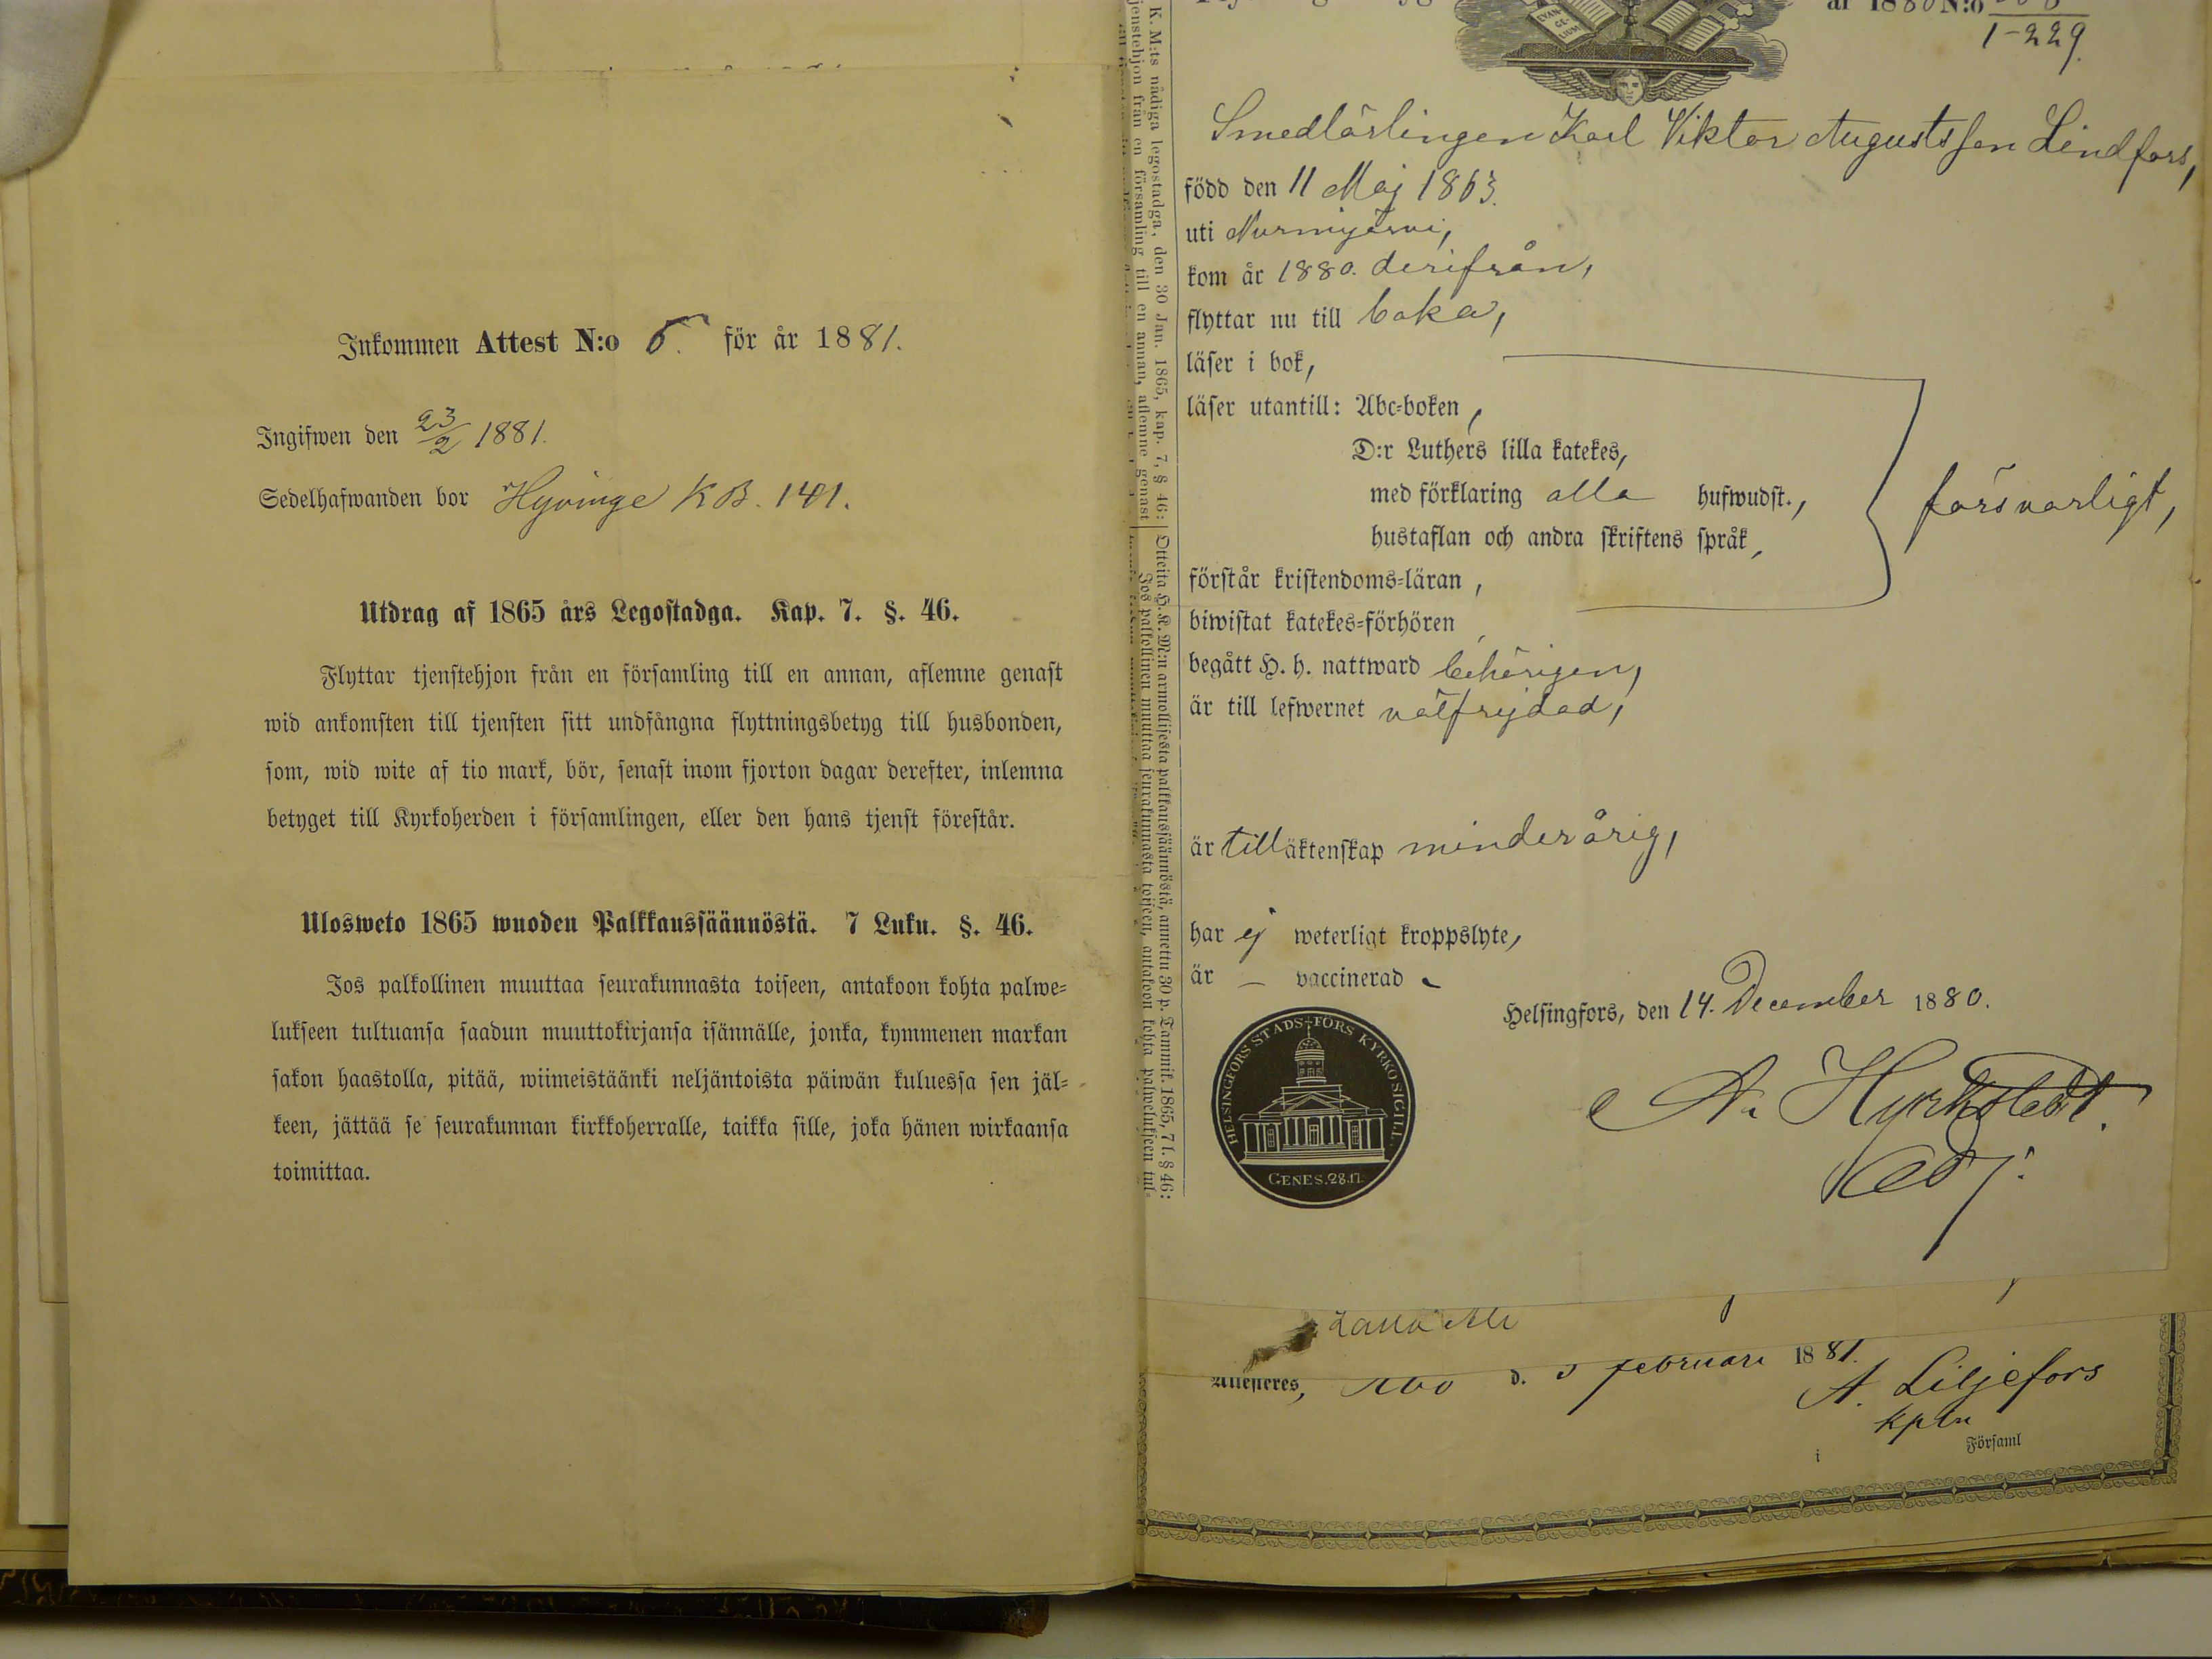 Inkommen Attest N:o 6. för år 1881.
Ingifwen den 23/2 1881.
Sedelhafwanden bor Hyvinge KB. 141.
Utdrag af 1865 års Legostadga. Kap. 7. §. 46.
Flyttar tjenstehjon från en församling till en annan, aflemne genast
wid ankomsten till tjensten sitt undfångna flyttningsbetyg till husbonden,
som, wid wite af tio mark, bör, senast inom fjorton dagar derefter, inlemna
betyget till Kyrkoherden i församlingen, eller den hans tjenst förestår.
Ulosweto 1865 wuoden Palkkaussäännöstä. 7 Luku. §. 46.
Jos palkollinen muuttaa seurakunnasta toiseen, antakoon kohta palwe-
lukseen tultuansa saadun muuttokirjansa isännälle, jonka, kymmenen markan
sakon haastolla, pitää, wiimeistäänki neljäntoista päiwän kuluessa sen jäl-
keen, jättää se seurakunnan kirkkoherralle, taikka sille, joka hänen wirkaansa
toimittaa.
K. M:ts nådiga legostadga, den 30 Jan. 1865, kap. 7, § 46:
jenstehjon från en församling till en annan, aflemne genast
Otteita H. K. M:n armollisesta palkkaussäännöstä, annettu 30 p. Tammik. 1865, 7 l. § 46:
Jos palkollinen muuttaa seurakunnasta toiseen, antakoon kohta palwelukseen tul-
EVAN-
GE-
LIUM
år 1880 N:o
1-229.
Smedlärlingen Karl Viktor Augustsson Lindfors,
född den 11 Maj 1863.
uti Nurmijärvi,
kom år 1880. derifrån,
flyttar nu till baka,
läser i bok,
läser utantill: Abc-boken,
D:r Luthers lilla katekes,
med förklaring alla hufwudst.,
hustaflan och andra skriftens språk,
försvarligt,
förstår kristendoms-läran,
biwistat katekes-förhören
begått H. h. nattward behörigen,
är till lefwernet välfrejdad,
är till äktenskap minderårig,
har ej weterligt kroppslyte,
är – vaccinerad
Helsingfors, den 14. December 1880.
HELSINGFORS STADS FÖRS KYRKO SIGILL.
GENES. 28. 17.
Adj.
Attesteres, Åbo d. 3 februari 1881.
A. Liljefors
kpln
i Församl